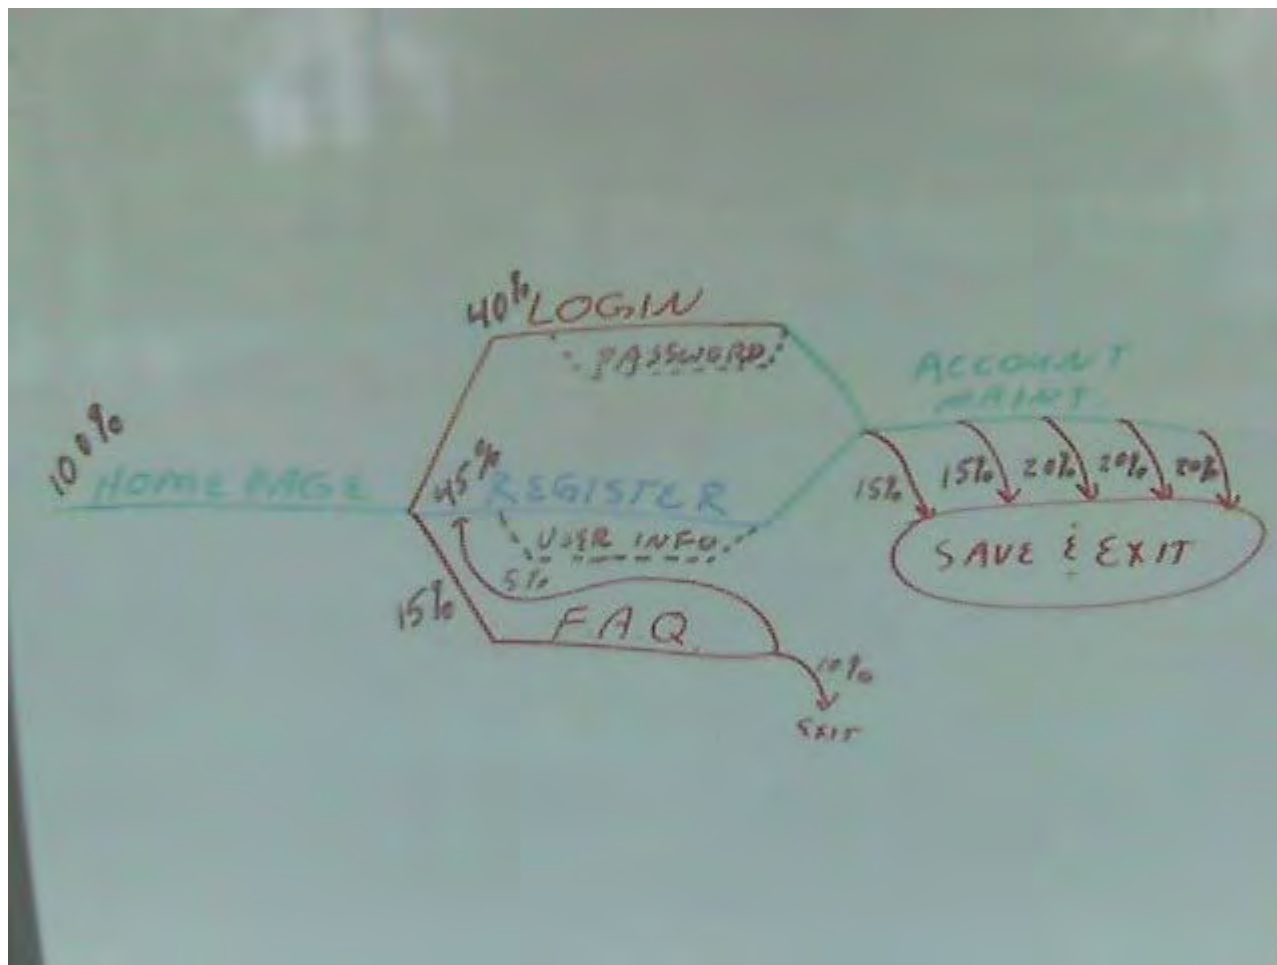 100%
HOME PAGE
40% LOGIN
PASSWORD
45% REGISTER
USER INFO
5%
15%
FAQ
10%
EXIT
ACCOUNT
MAINT.
15% 15% 20% 20% 20%
SAVE & EXIT